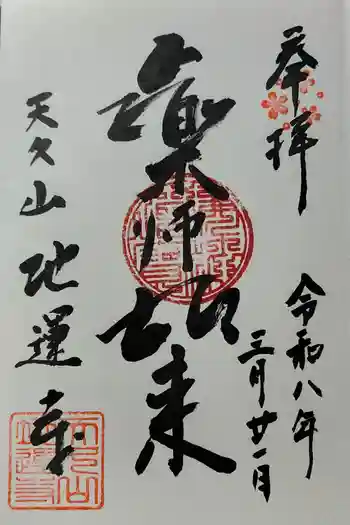 奉拝
令和八年
三月廿一日
薬師如来
天久山
地運寺